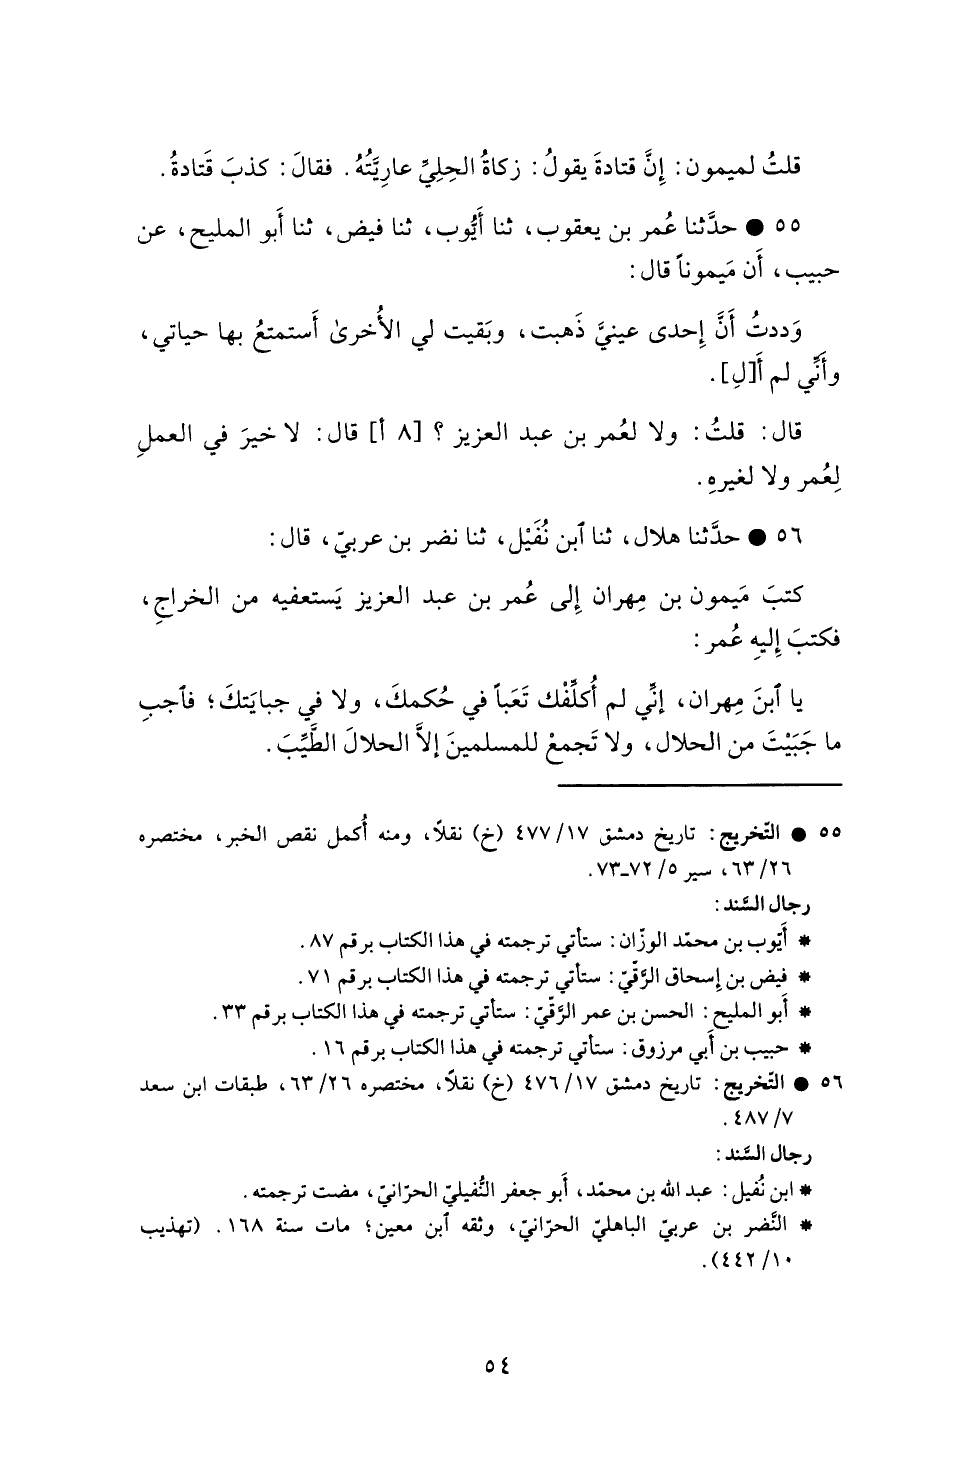 قلتُ لميمون: إِنَّ قتادةَ يقولُ: زكاةُ الحِليِّ عاريَّتُهُ. فقالَ: كذبَ قَتادةُ.
٥٥ ● حدَّثنا عُمر بن يعقوب، ثنا أَيُّوب، ثنا فيض، ثنا أَبو المليح، عن
حبيب، أَن مَيموناً قال:
وَددتُ أَنَّ إِحدى عينيَّ ذَهبت، وبَقيت لي الأُخرىٰ أَستمتعُ بها حياتي،
وأَنِّي لم أَ[لِ].
قال: قلتُ: ولا لعُمر بن عبد العزيز ؟ [٨ أ] قال: لا خيرَ في العملِ
لِعُمر ولا لغيرهِ.
٥٦ ● حدَّثنا هلال، ثنا ٱبن نُفَيْل، ثنا نضر بن عربيّ، قال:
كتبَ مَيمون بن مِهران إِلى عُمر بن عبد العزيز يَستعفيه من الخراجِ،
فكتبَ إِليهِ عُمر:
يا ٱبنَ مِهران، إِنِّي لم أُكلِّفْك تَعَباً في حُكمكَ، ولا في جبايَتكَ؛ فٱجبِ
ما جَبَيْتَ من الحلال، ولا تَجمعْ للمسلمينَ إِلاَّ الحلالَ الطَّيِّبَ.
٥٥ ● التّخريج: تاريخ دمشق ٤٧٧/١٧ (خ) نقلاً، ومنه أُكمل نقص الخبر، مختصره
٦٣/٢٦، سير ٥/ ٧٢ـ٧٣.
رجال السَّند:
* أَيّوب بن محمّد الوزّان: ستأتي ترجمته في هذا الكتاب برقم ٨٧.
* فيض بن إِسحاق الرَّقّيّ: ستأتي ترجمته في هذا الكتاب برقم ٧١.
* أَبو المليح: الحسن بن عمر الرَّقّيّ: ستأتي ترجمته في هذا الكتاب برقم ٣٣.
* حبيب بن أَبي مرزوق: ستأتي ترجمته في هذا الكتاب برقم ١٦.
٥٦ ● التّخريج: تاريخ دمشق ٤٧٦/١٧ (خ) نقلاً، مختصره ٦٣/٢٦، طبقات ابن سعد
٤٨٧/٧.
رجال السَّند:
* ابن نُفيل: عبد الله بن محمّد، أَبو جعفر النُّفيليّ الحرّانيّ، مضت ترجمته.
* النَّضر بن عربيّ الباهليّ الحرّانيّ، وثقه ٱبن معين؛ مات سنة ١٦٨. (تهذيب
٤٤٢/١٠).
٥٤